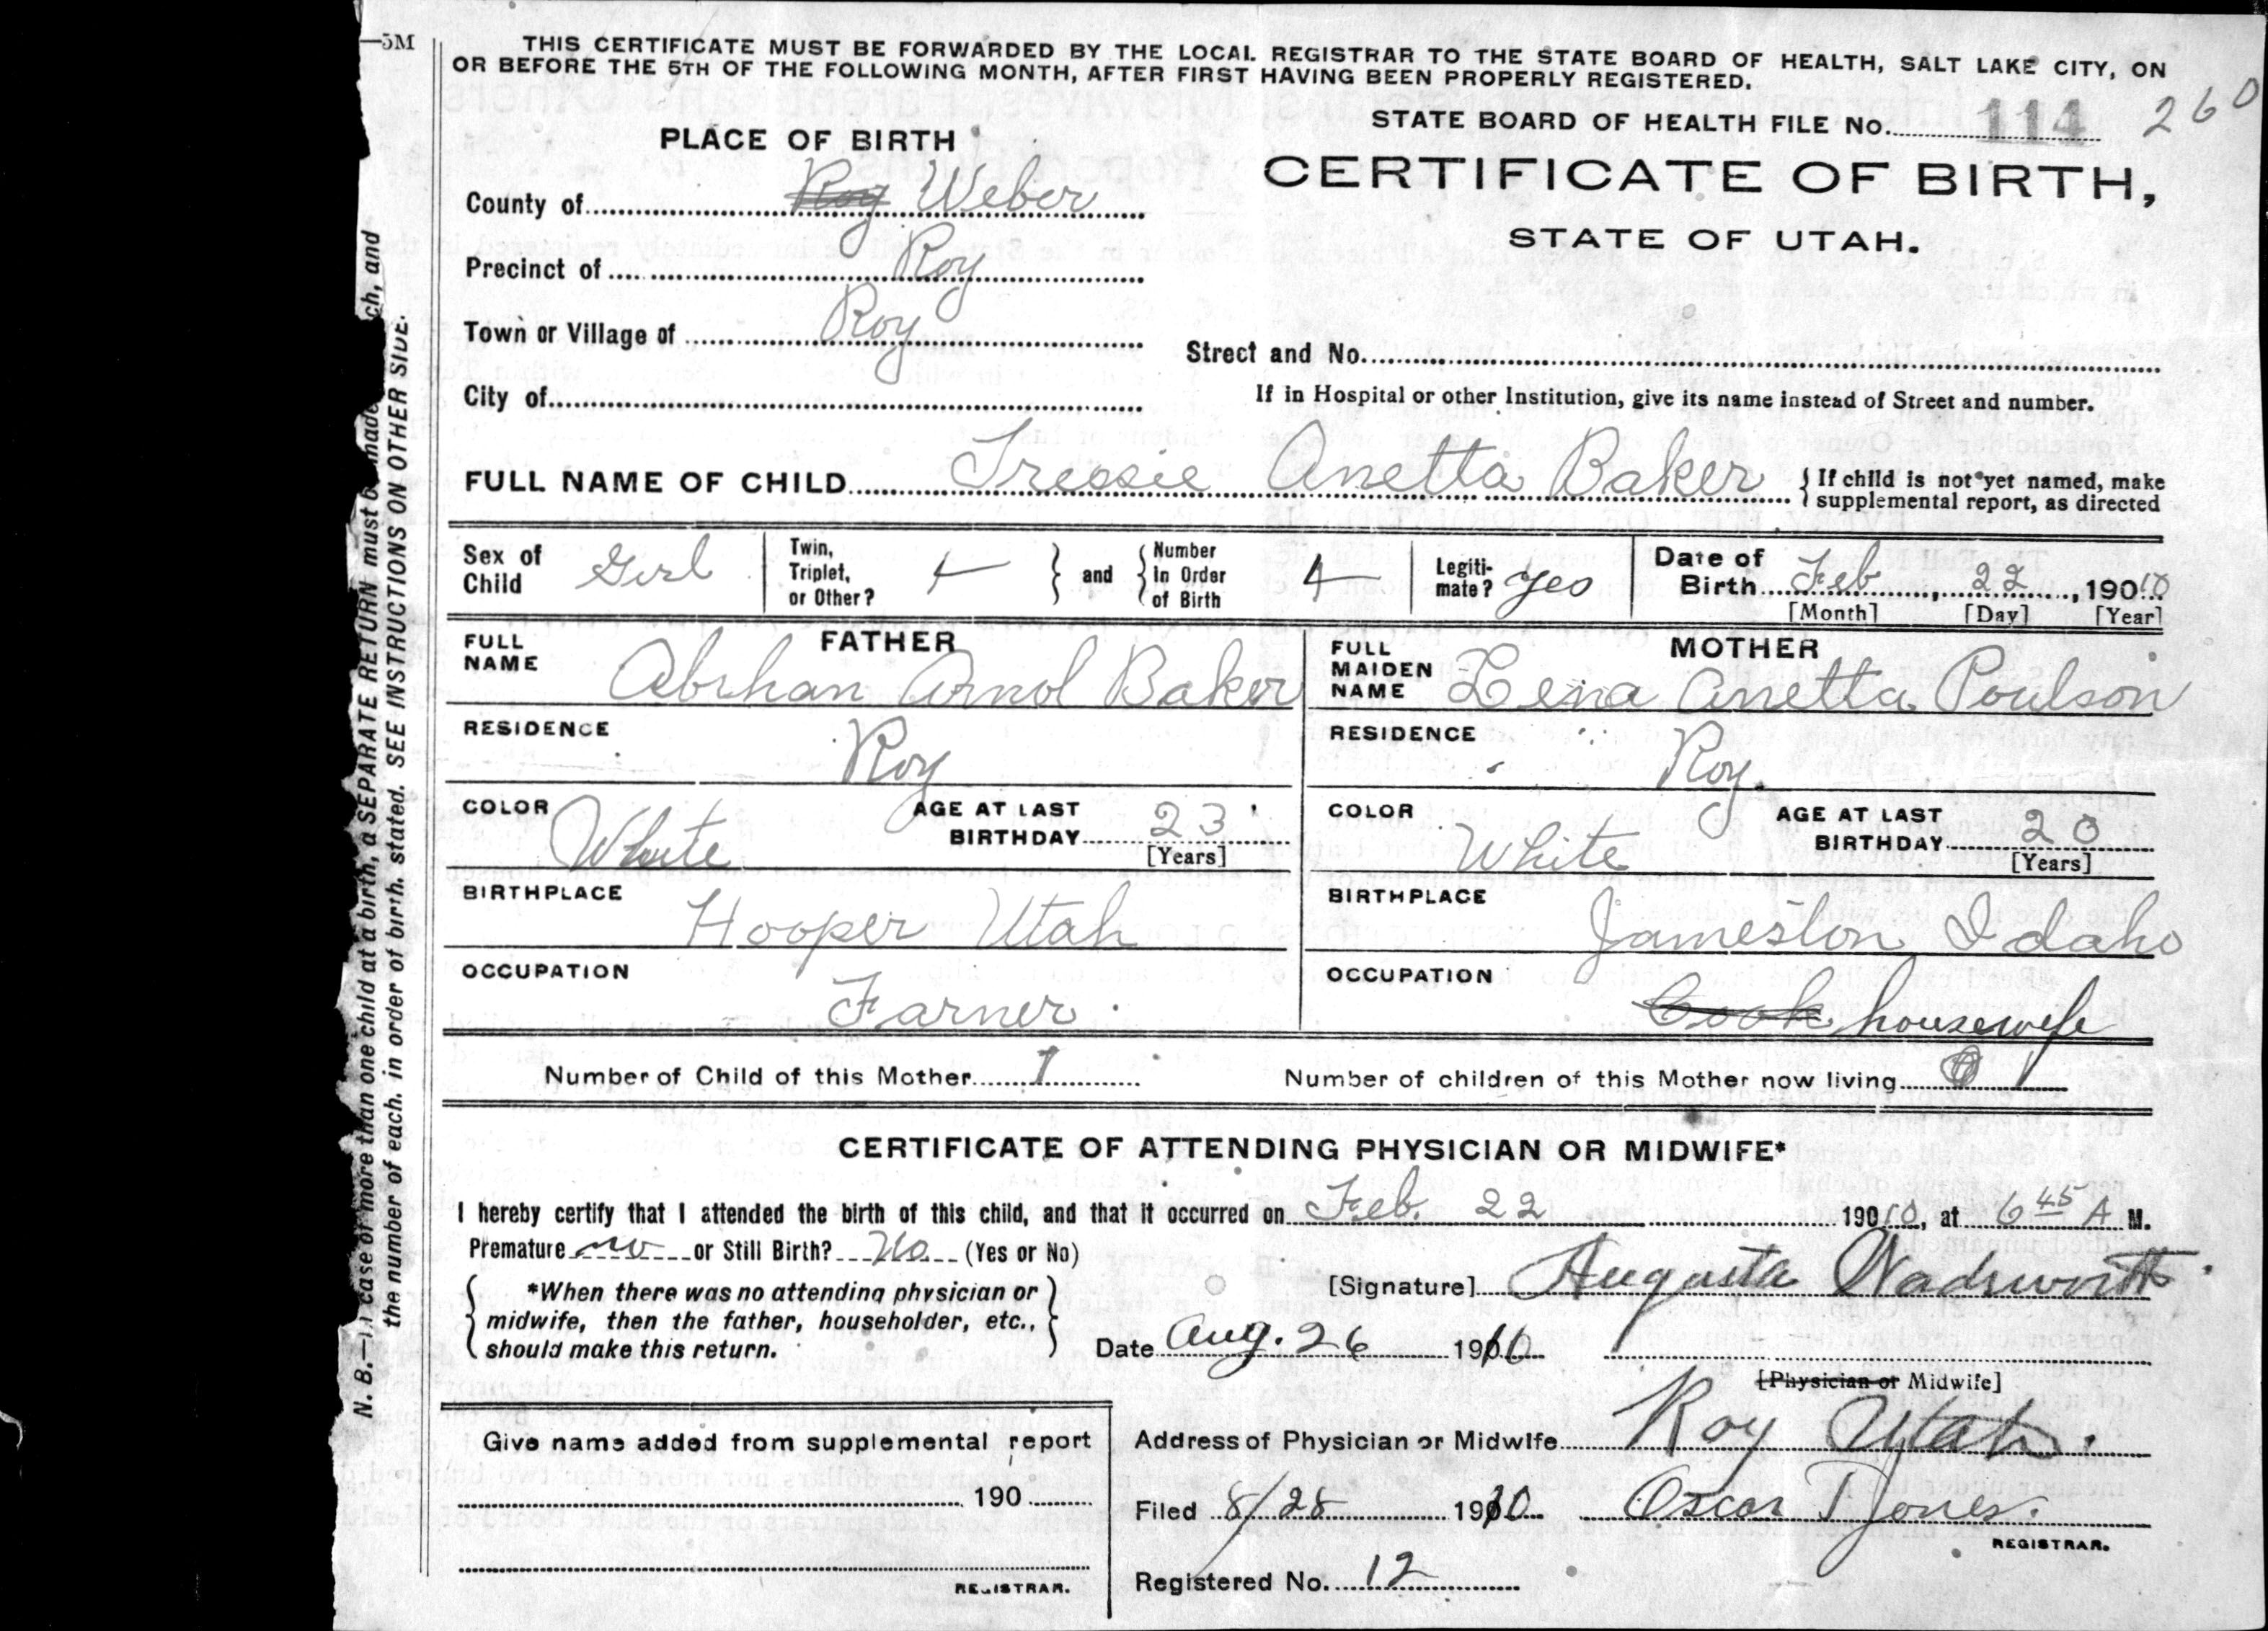 —5M
THIS CERTIFICATE MUST BE FORWARDED BY THE LOCAL REGISTRAR TO THE STATE BOARD OF HEALTH, SALT LAKE CITY, ON
OR BEFORE THE 5TH OF THE FOLLOWING MONTH, AFTER FIRST HAVING BEEN PROPERLY REGISTERED.
STATE BOARD OF HEALTH FILE No. 114 260
PLACE OF BIRTH
CERTIFICATE OF BIRTH,
STATE OF UTAH.
County of Roy Weber
Precinct of Roy
Town or Village of Roy
Street and No.
City of
If in Hospital or other Institution, give its name instead of Street and number.
FULL NAME OF CHILD Tressie Anetta Baker { If child is not yet named, make
supplemental report, as directed
Sex of Child Girl
Twin, Triplet, or Other?
and
Number In Order of Birth
Legiti-mate? yes
Date of Birth Feb, 22, 19010
[Month] [Day] [Year]
FATHER
FULL NAME Abrhan Arnol Baker
MOTHER
FULL MAIDEN NAME Lena Anetta Poulson
RESIDENCE Roy
RESIDENCE Roy.
COLOR White AGE AT LAST BIRTHDAY 23
[Years]
COLOR White AGE AT LAST BIRTHDAY 20
[Years]
BIRTHPLACE Hooper Utah
BIRTHPLACE Jameston Idaho
OCCUPATION Farner
OCCUPATION Cook housewife
Number of Child of this Mother 1
Number of children of this Mother now living 1
CERTIFICATE OF ATTENDING PHYSICIAN OR MIDWIFE*
I hereby certify that I attended the birth of this child, and that it occurred on Feb. 22 19010, at 6 45 A M.
Premature no or Still Birth? No (Yes or No)
*When there was no attending physician or
midwife, then the father, householder, etc.,
should make this return.
[Signature] Augusta Wadsworth.
Date Aug. 26 1910
[Physician or Midwife]
Give name added from supplemental report
190
REGISTRAR.
Address of Physician or Midwife Roy Utah.
Filed 8/28 1910 Oscar T Jones.
REGISTRAR.
Registered No. 12
N. B.—In case of more than one child at a birth, a SEPARATE RETURN must be made ch, and
the number of each, in order of birth, stated. SEE INSTRUCTIONS ON OTHER SIDE.